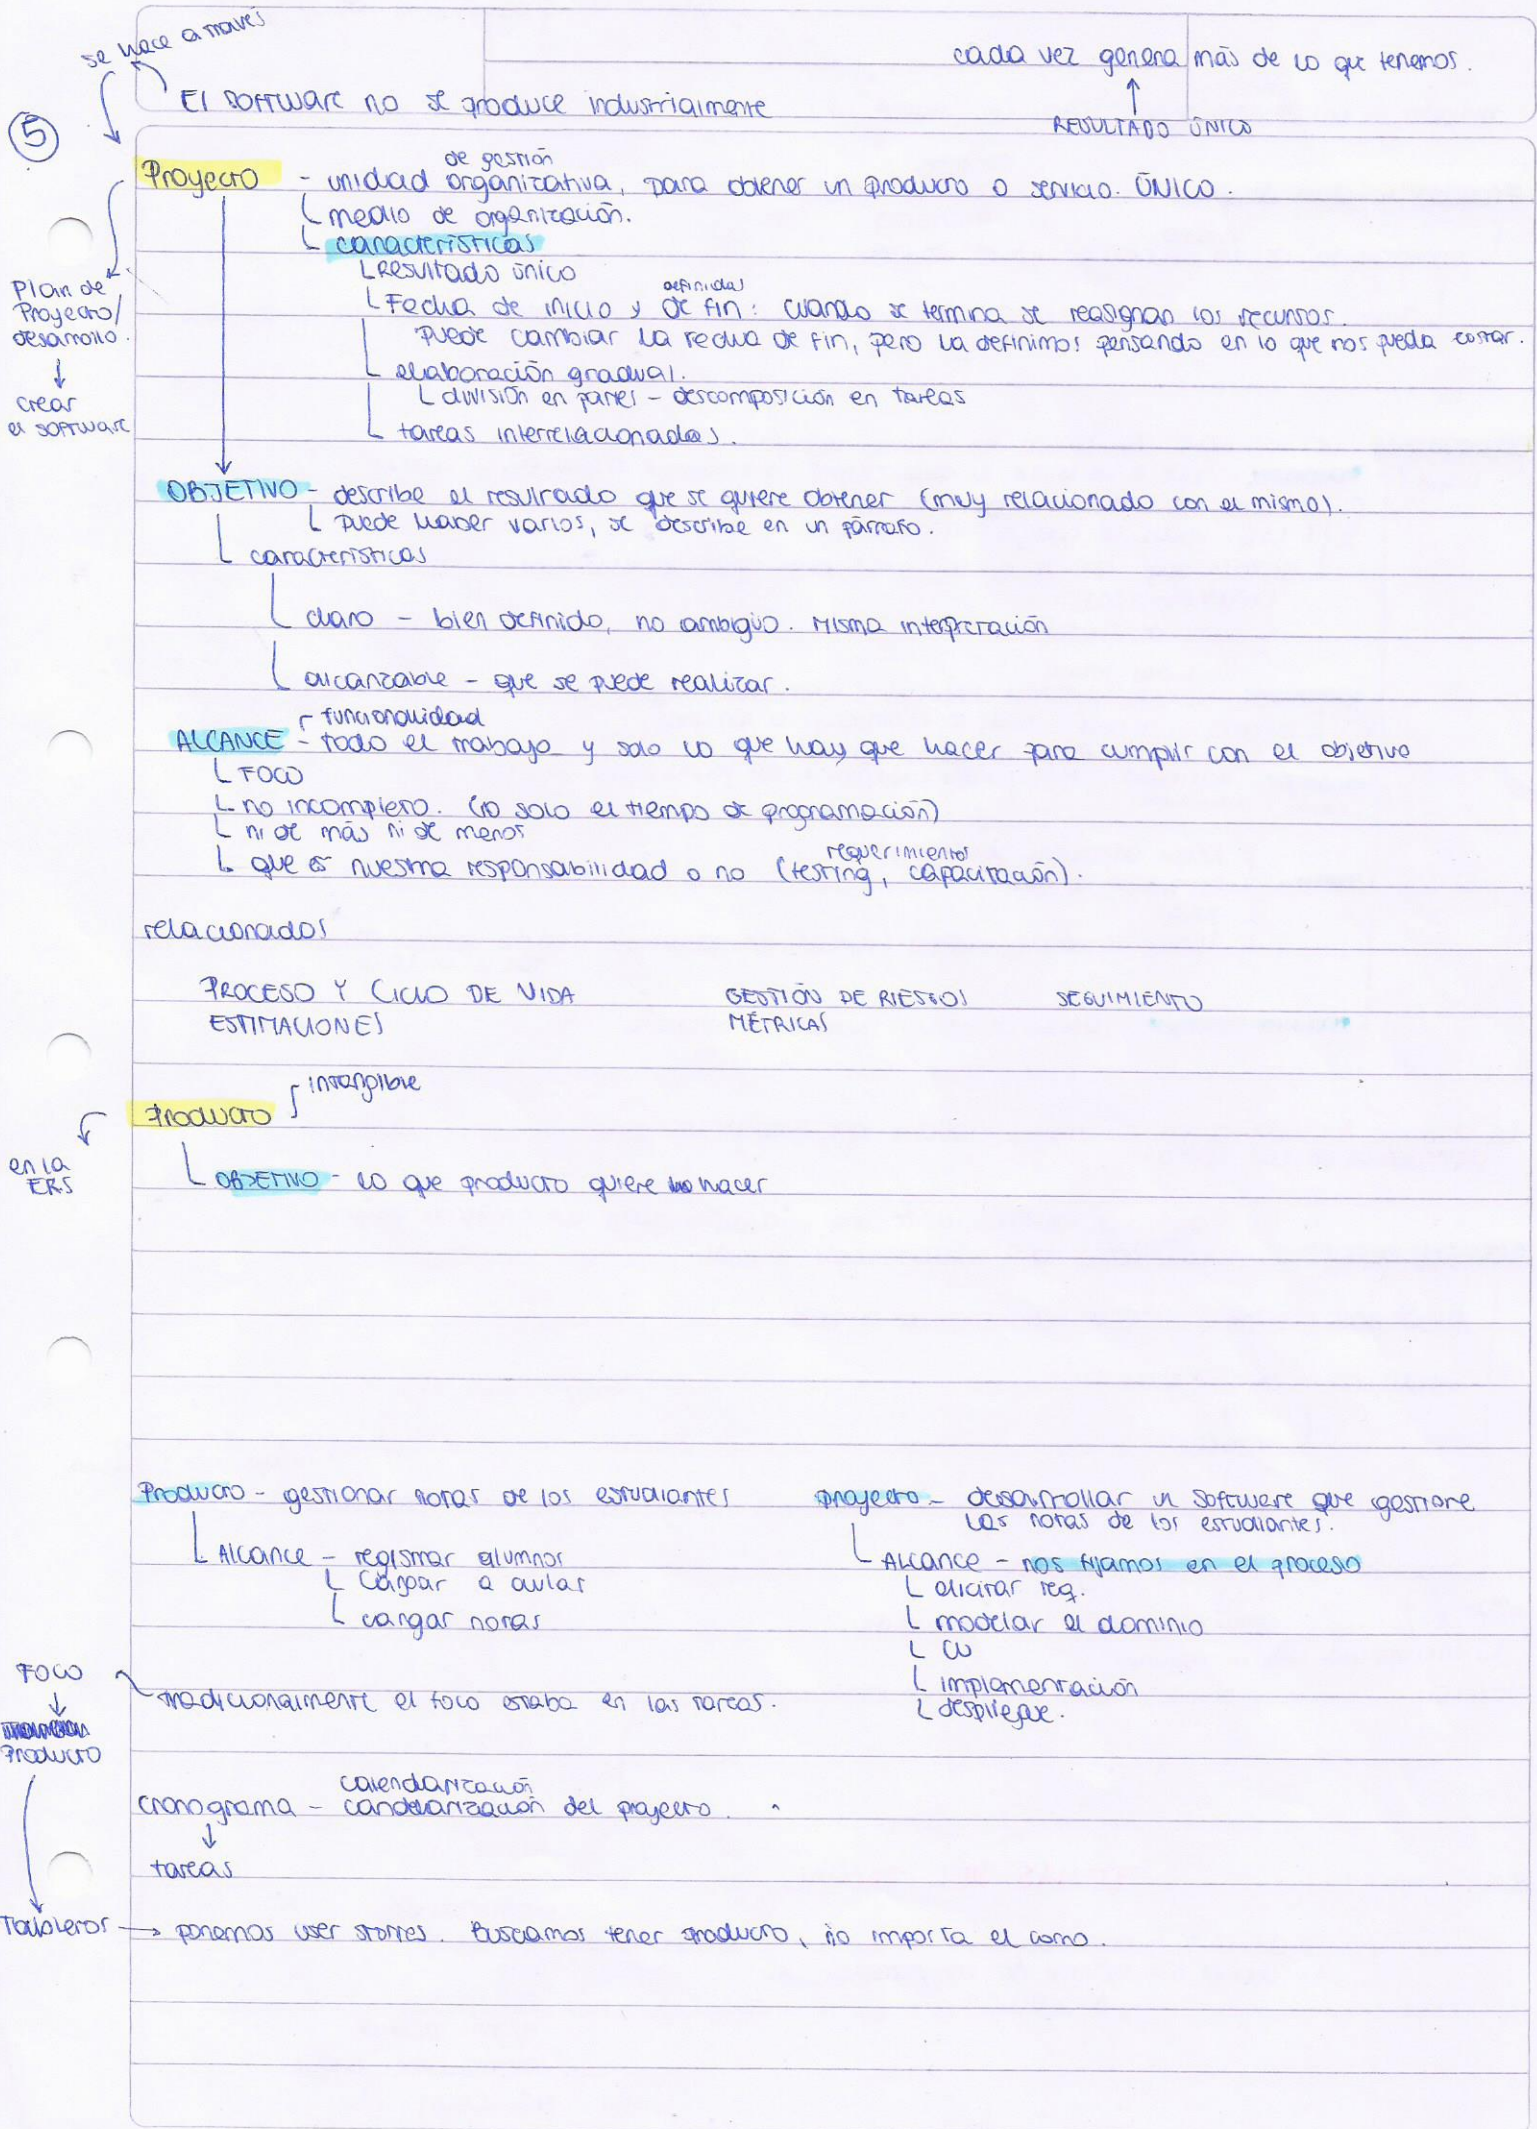 se hace a través
cada vez genera más de lo que tenemos.
El software no se produce industrialmente
RESULTADO ÚNICO
5
de gestión
Proyecto - unidad organizativa, para obtener un producto o servicio ÚNICO.
medio de organización.
características
Resultado único
definidas
Fecha de inicio y de fin: cuando se termina se reasignan los recursos.
puede cambiar la fecha de fin, pero la definimos pensando en lo que nos pueda costar.
elaboración gradual.
división en partes - descomposición en tareas
tareas interrelacionadas.
Plan de
Proyecto/
desarrollo.
crear
el software
OBJETIVO - describe el resultado que se quiere obtener (muy relacionado con el mismo).
puede haber varios, se describe en un párrafo.
características
claro - bien definido, no ambiguo. Misma interpretación
alcanzable - que se puede realizar.
funcionalidad
ALCANCE - todo el trabajo y solo lo que hay que hacer para cumplir con el objetivo
FOCO
no incompleto. (no solo el tiempo de programación)
ni de más ni de menos
requerimientos
que es nuestra responsabilidad o no (testing, capacitación).
relacionados
PROCESO Y CICLO DE VIDA GESTIÓN DE RIESGOS SEGUIMIENTO
ESTIMACIONES MÉTRICAS
intangible
Producto
en la
ERS
OBJETIVO - lo que producto quiere hacer
Producto - gestionar notas de los estudiantes
Alcance - registrar alumnos
a aulas
cargar notas
proyecto - desarrollar un software que gestione
las notas de los estudiantes.
ALCANCE - nos fijamos en el proceso
elicitar req.
modelar el dominio
CU
implementación
despliegue.
FOCO
Producto
tradicionalmente el foco estaba en las tareas.
calendarización
cronograma - candelarización del proyecto.
tareas
Tableros → ponemos user stories. Buscamos tener producto, no importa el como.